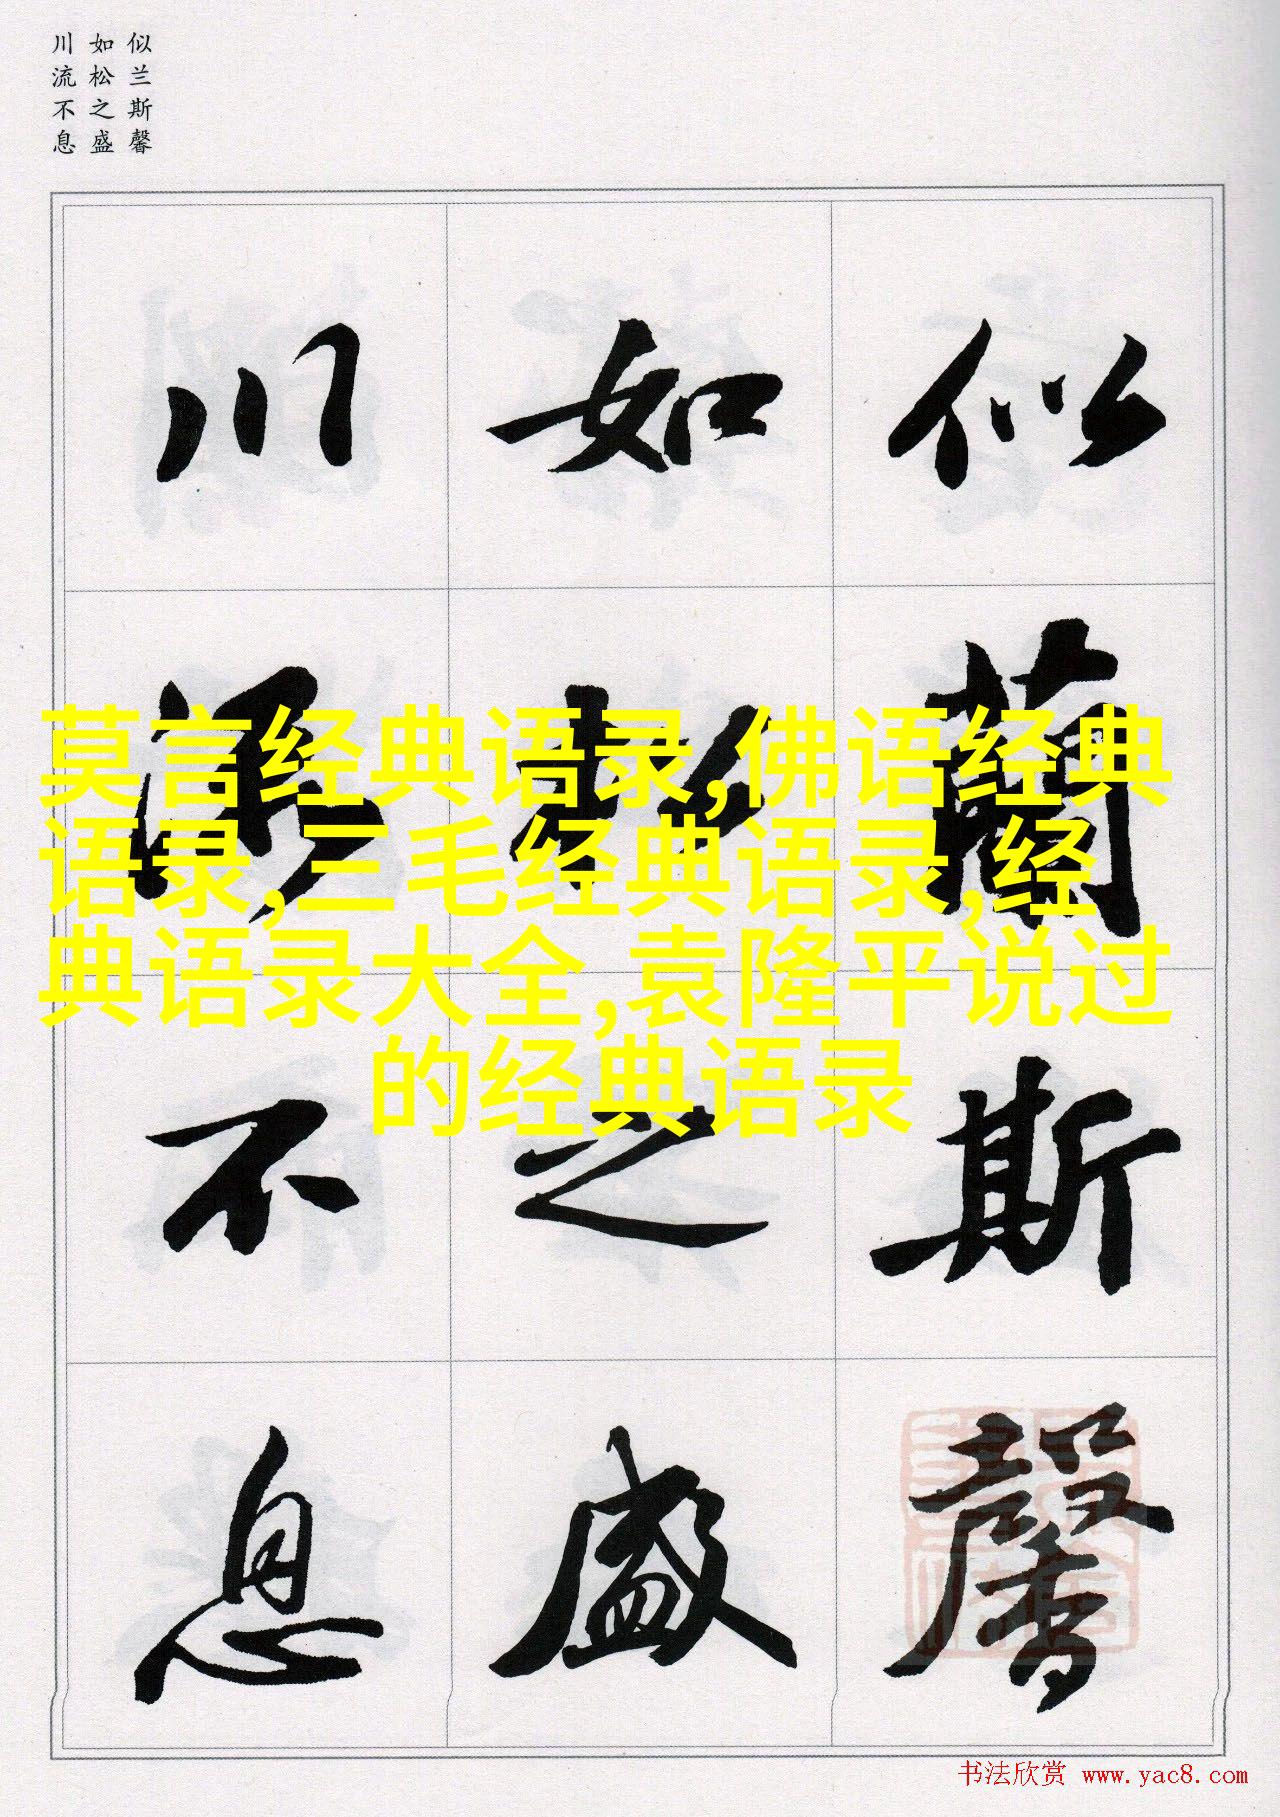 似兰斯馨
如松之盛
川流不息
似蘭斯馨
如松之盛
川流不息
莫言经典语录,佛语经典
语录,三毛经典语录,经
典语录大全,袁隆平说过
的经典语录
书法欣赏 www.yac8.com